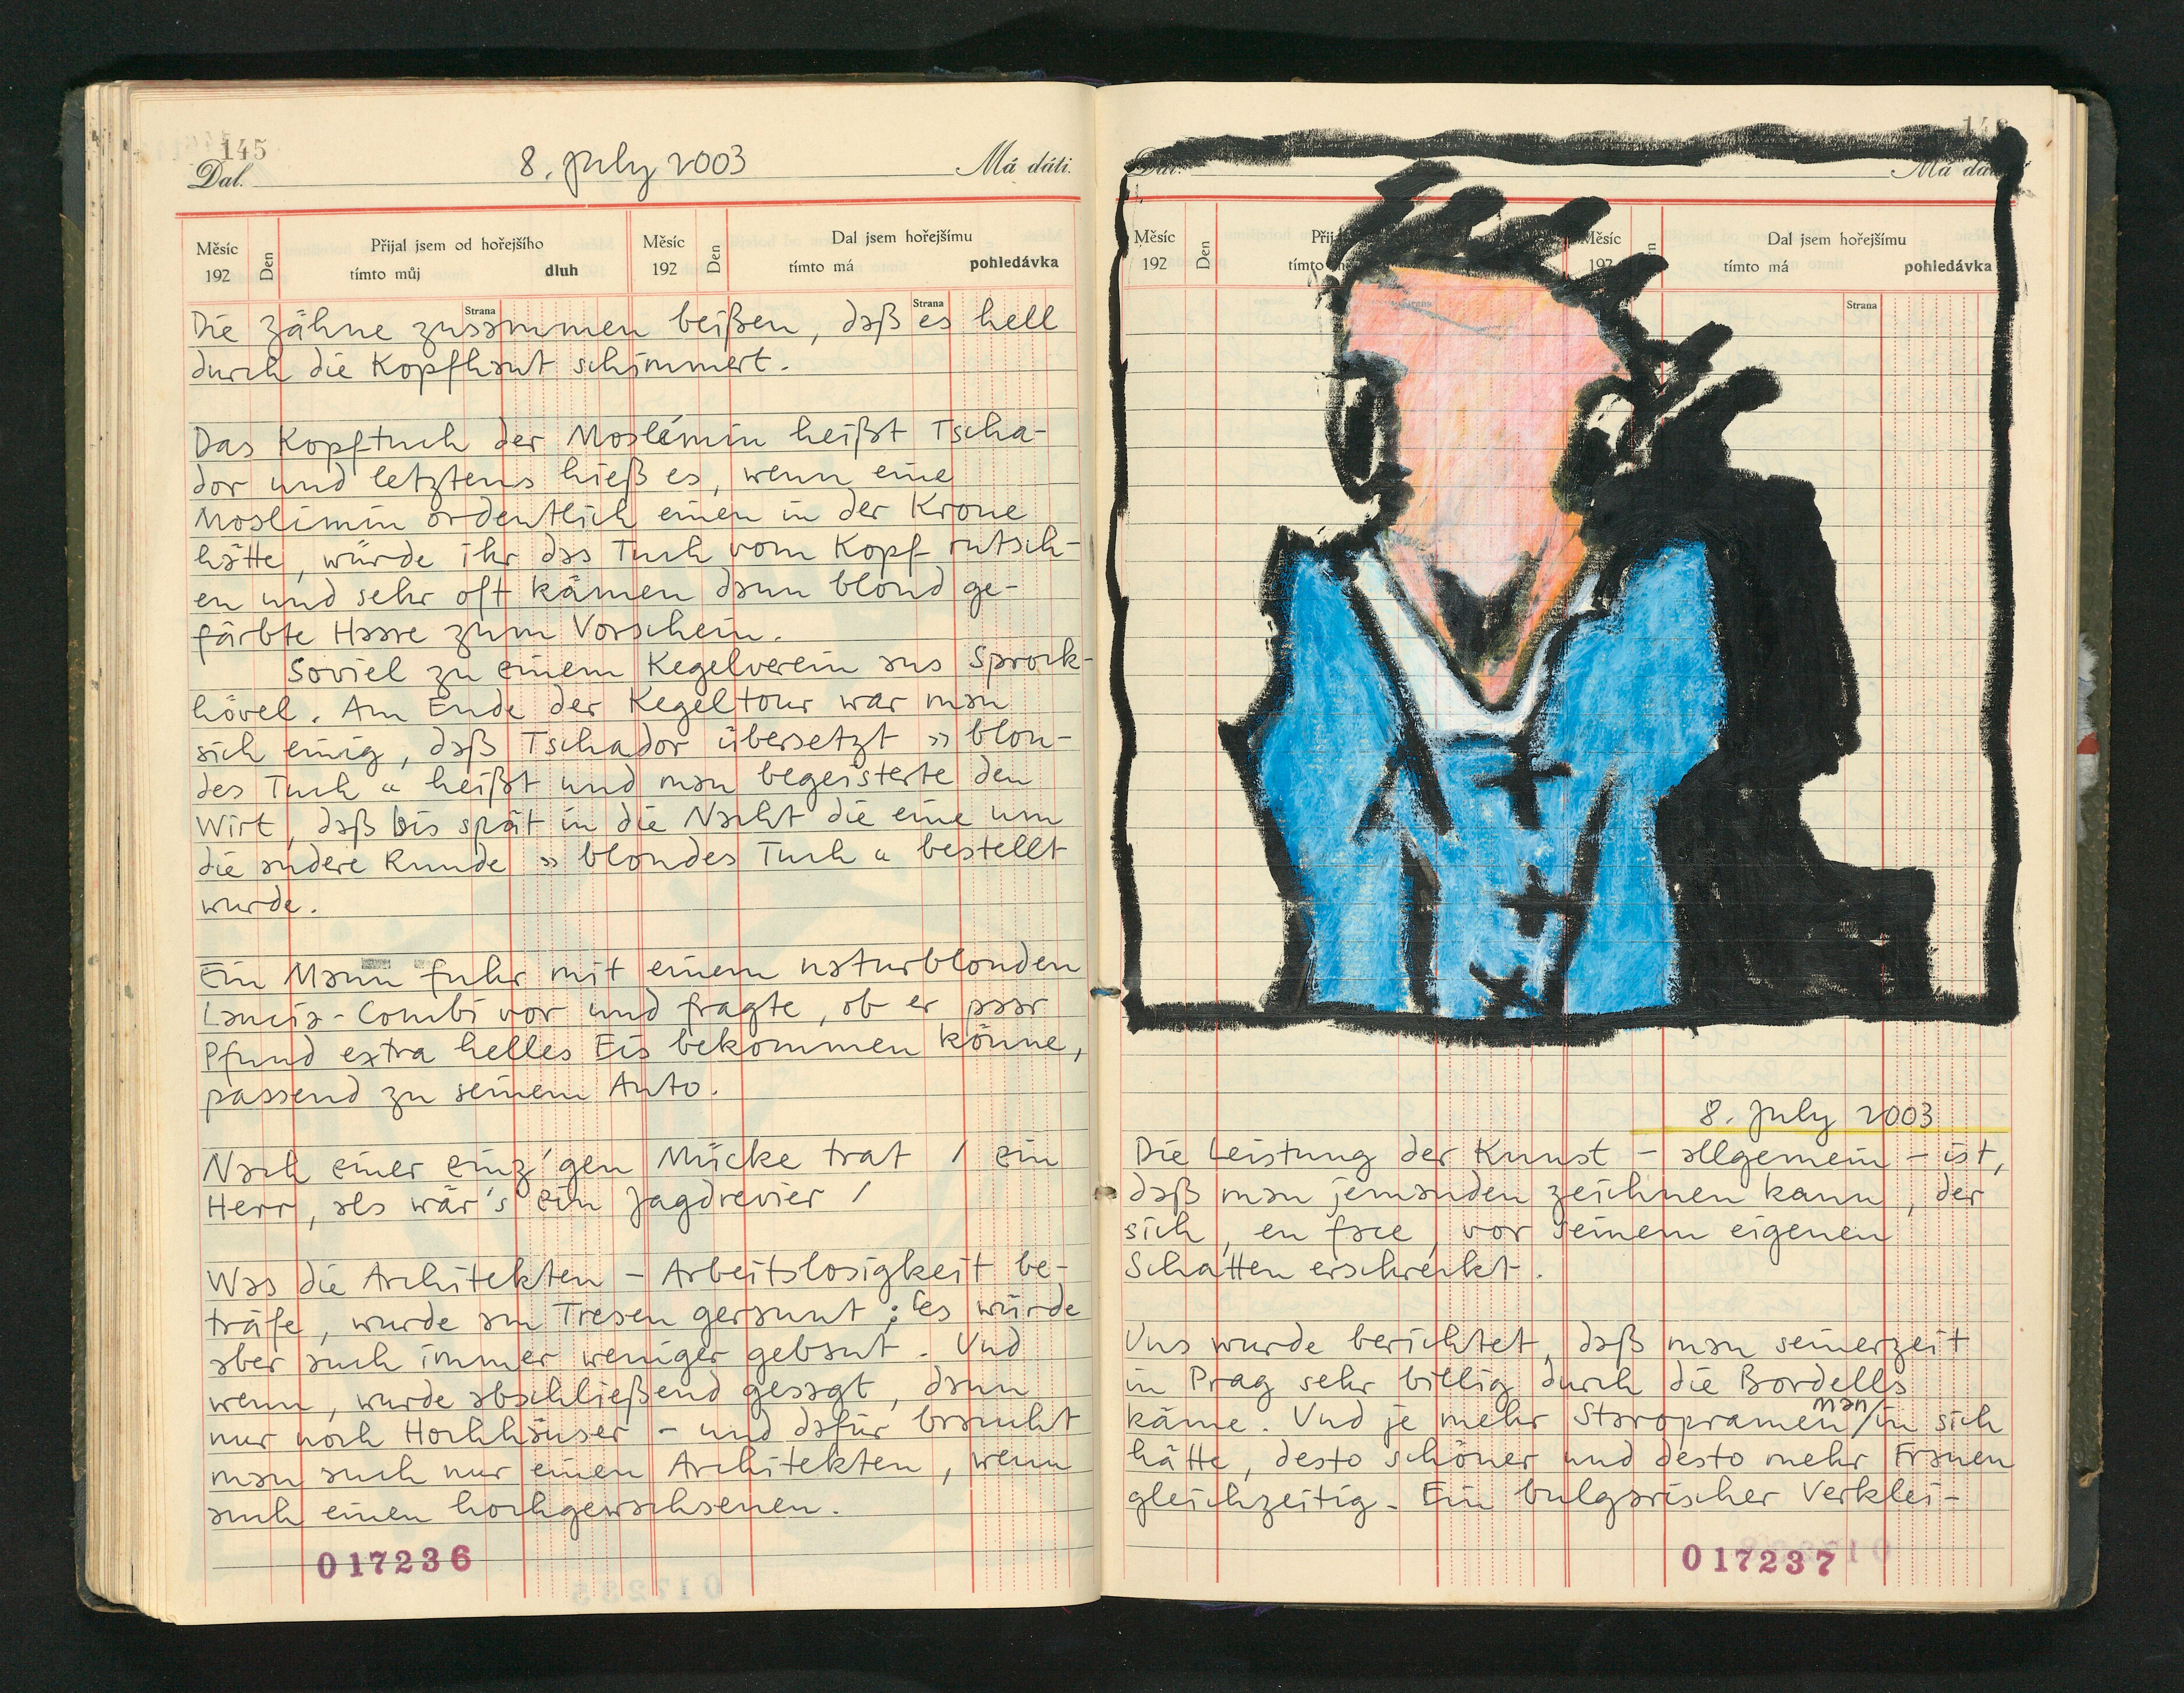 145
Dal. 8. July 2003 Má dáti.
Měsíc 192 Den Přijal jsem od hořejšího tímto můj dluh Měsíc 192 Den Dal jsem hořejšímu tímto má pohledávka
Strana Strana
Die Zähne zusammen beißen, daß es hell
durch die Kopfhaut schimmert.
Das Kopftuch der Moslémin heißt Tscha-
dor und letztens hieß es, wenn eine
Moslimin ordentlich einen in der Krone
hätte, würde ihr das Tuch vom Kopf rutsch-
en und sehr oft kämen dann blond ge-
färbte Haare zum Vorschein.
Soviel zu einem Kegelverein aus Sprock-
hövel. Am Ende der Kegeltour war man
sich einig, daß Tschador übersetzt »blon-
des Tuch« heißt und man begeisterte den
Wirt, daß bis spät in die Nacht die eine um
die andere Runde »blondes Tuch« bestellt
wurde.
Ein Mann fuhr mit einem naturblonden
Lancia-Combi vor und fragte, ob er paar
Pfund extra helles Eis bekommen könne,
passend zu seinem Auto.
Nach einer einz'gen Mücke trat / ein
Herr, als wär's ein Jagdrevier /
Was die Architekten-Arbeitslosigkeit be-
träfe, wurde am Tresen geraunt; es würde
aber auch immer weniger gebaut. Und
wenn, wurde abschließend gesagt, dann
nur noch Hochhäuser - und dafür braucht
man auch nur einen Architekten, wenn
auch einen hochgewachsenen.
017236
Dal. Má dáti
Měsíc 192 Den Měsíc 192 Dal jsem hořejšímu tímto má pohledávka
Strana
8. July 2003
Die Leistung der Kunst - allgemein - ist,
daß man jemanden zeichnen kann, der
sich, en face, vor seinem eigenen
Schatten erschreckt.
Uns wurde berichtet, daß man seinerzeit
in Prag sehr billig durch die Bordells
käme. Und je mehr Staropramen man in sich
hätte, desto schöner und desto mehr Frauen
gleichzeitig. Ein bulgarischer Verklei-
017237